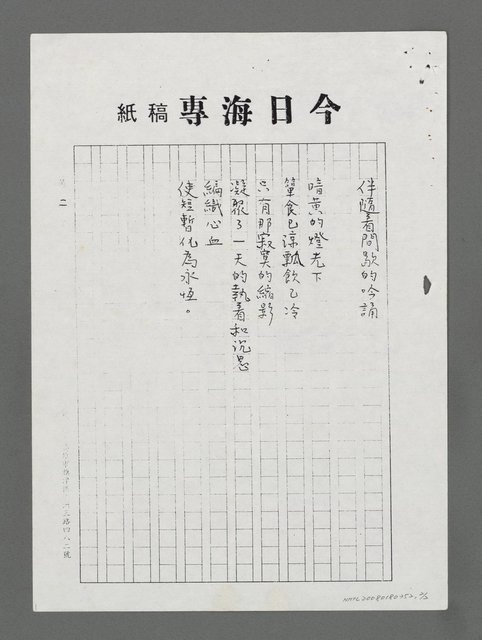 今日海專稿紙
伴隨着間歇的吟誦
暗黃的燈光下
簞食已涼瓢飲已冷
只有那寂寞的縮影
凝聚了一天的執着和沉思
編織心血
使短暫化為永恆。
第二